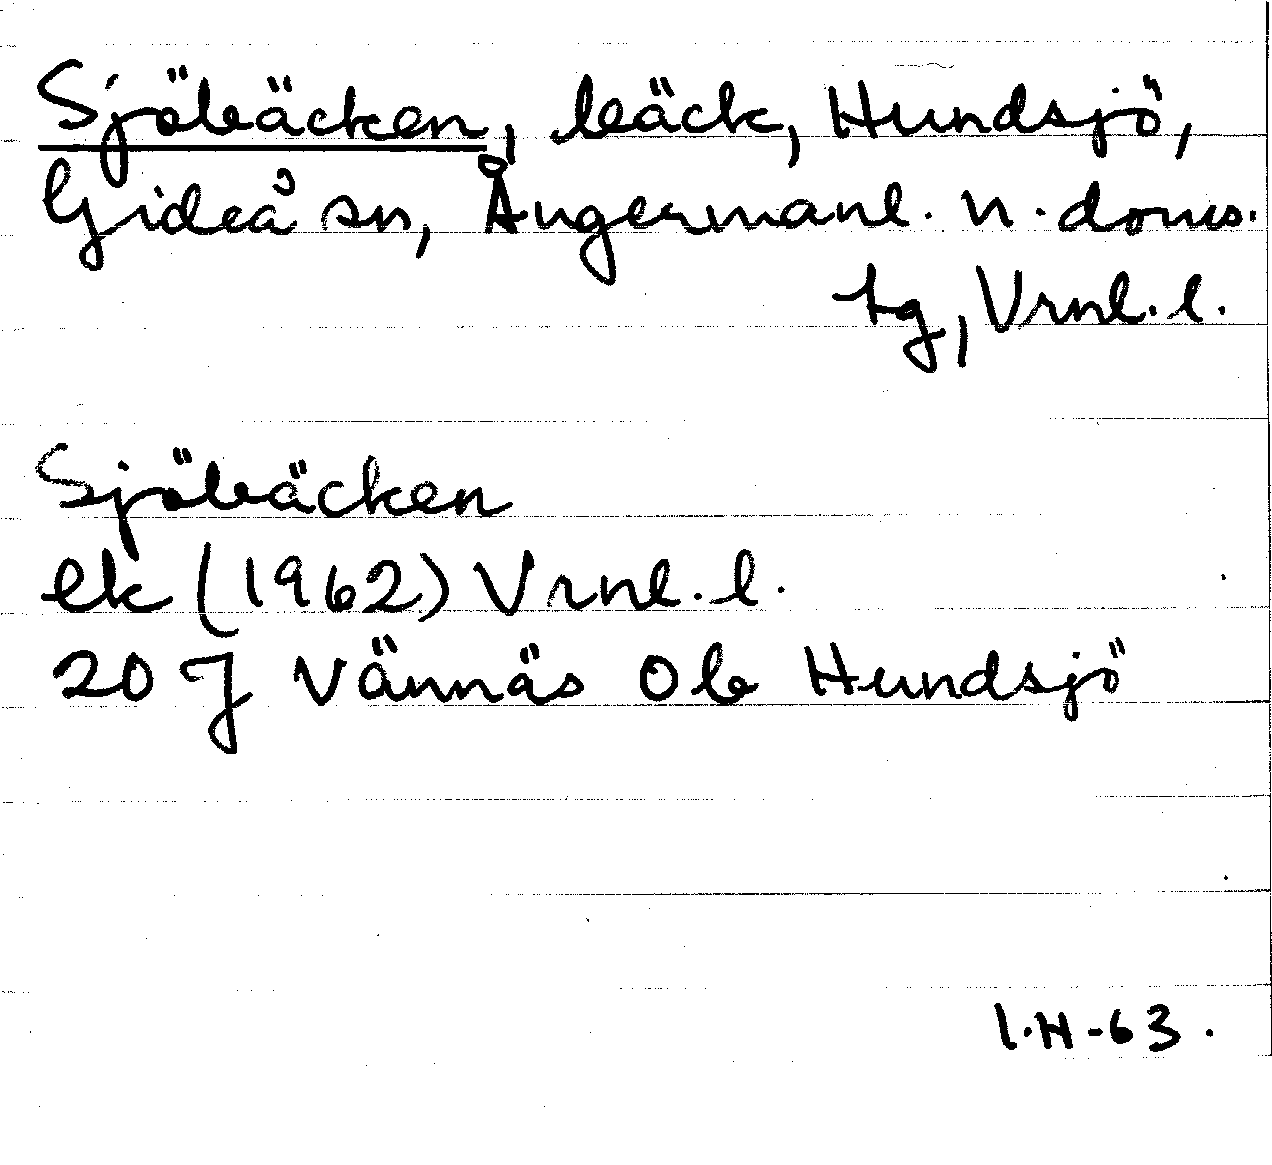 Sjöbäcken, bäck, Hundsjö,
Gideå sn, Ångermanl. n. doms.
tg, Vrnl. l.
Sjöbäcken
ek (1962) Vrnl. l.
20 J Vännäs 0 b Hundsjö
I.H-63.